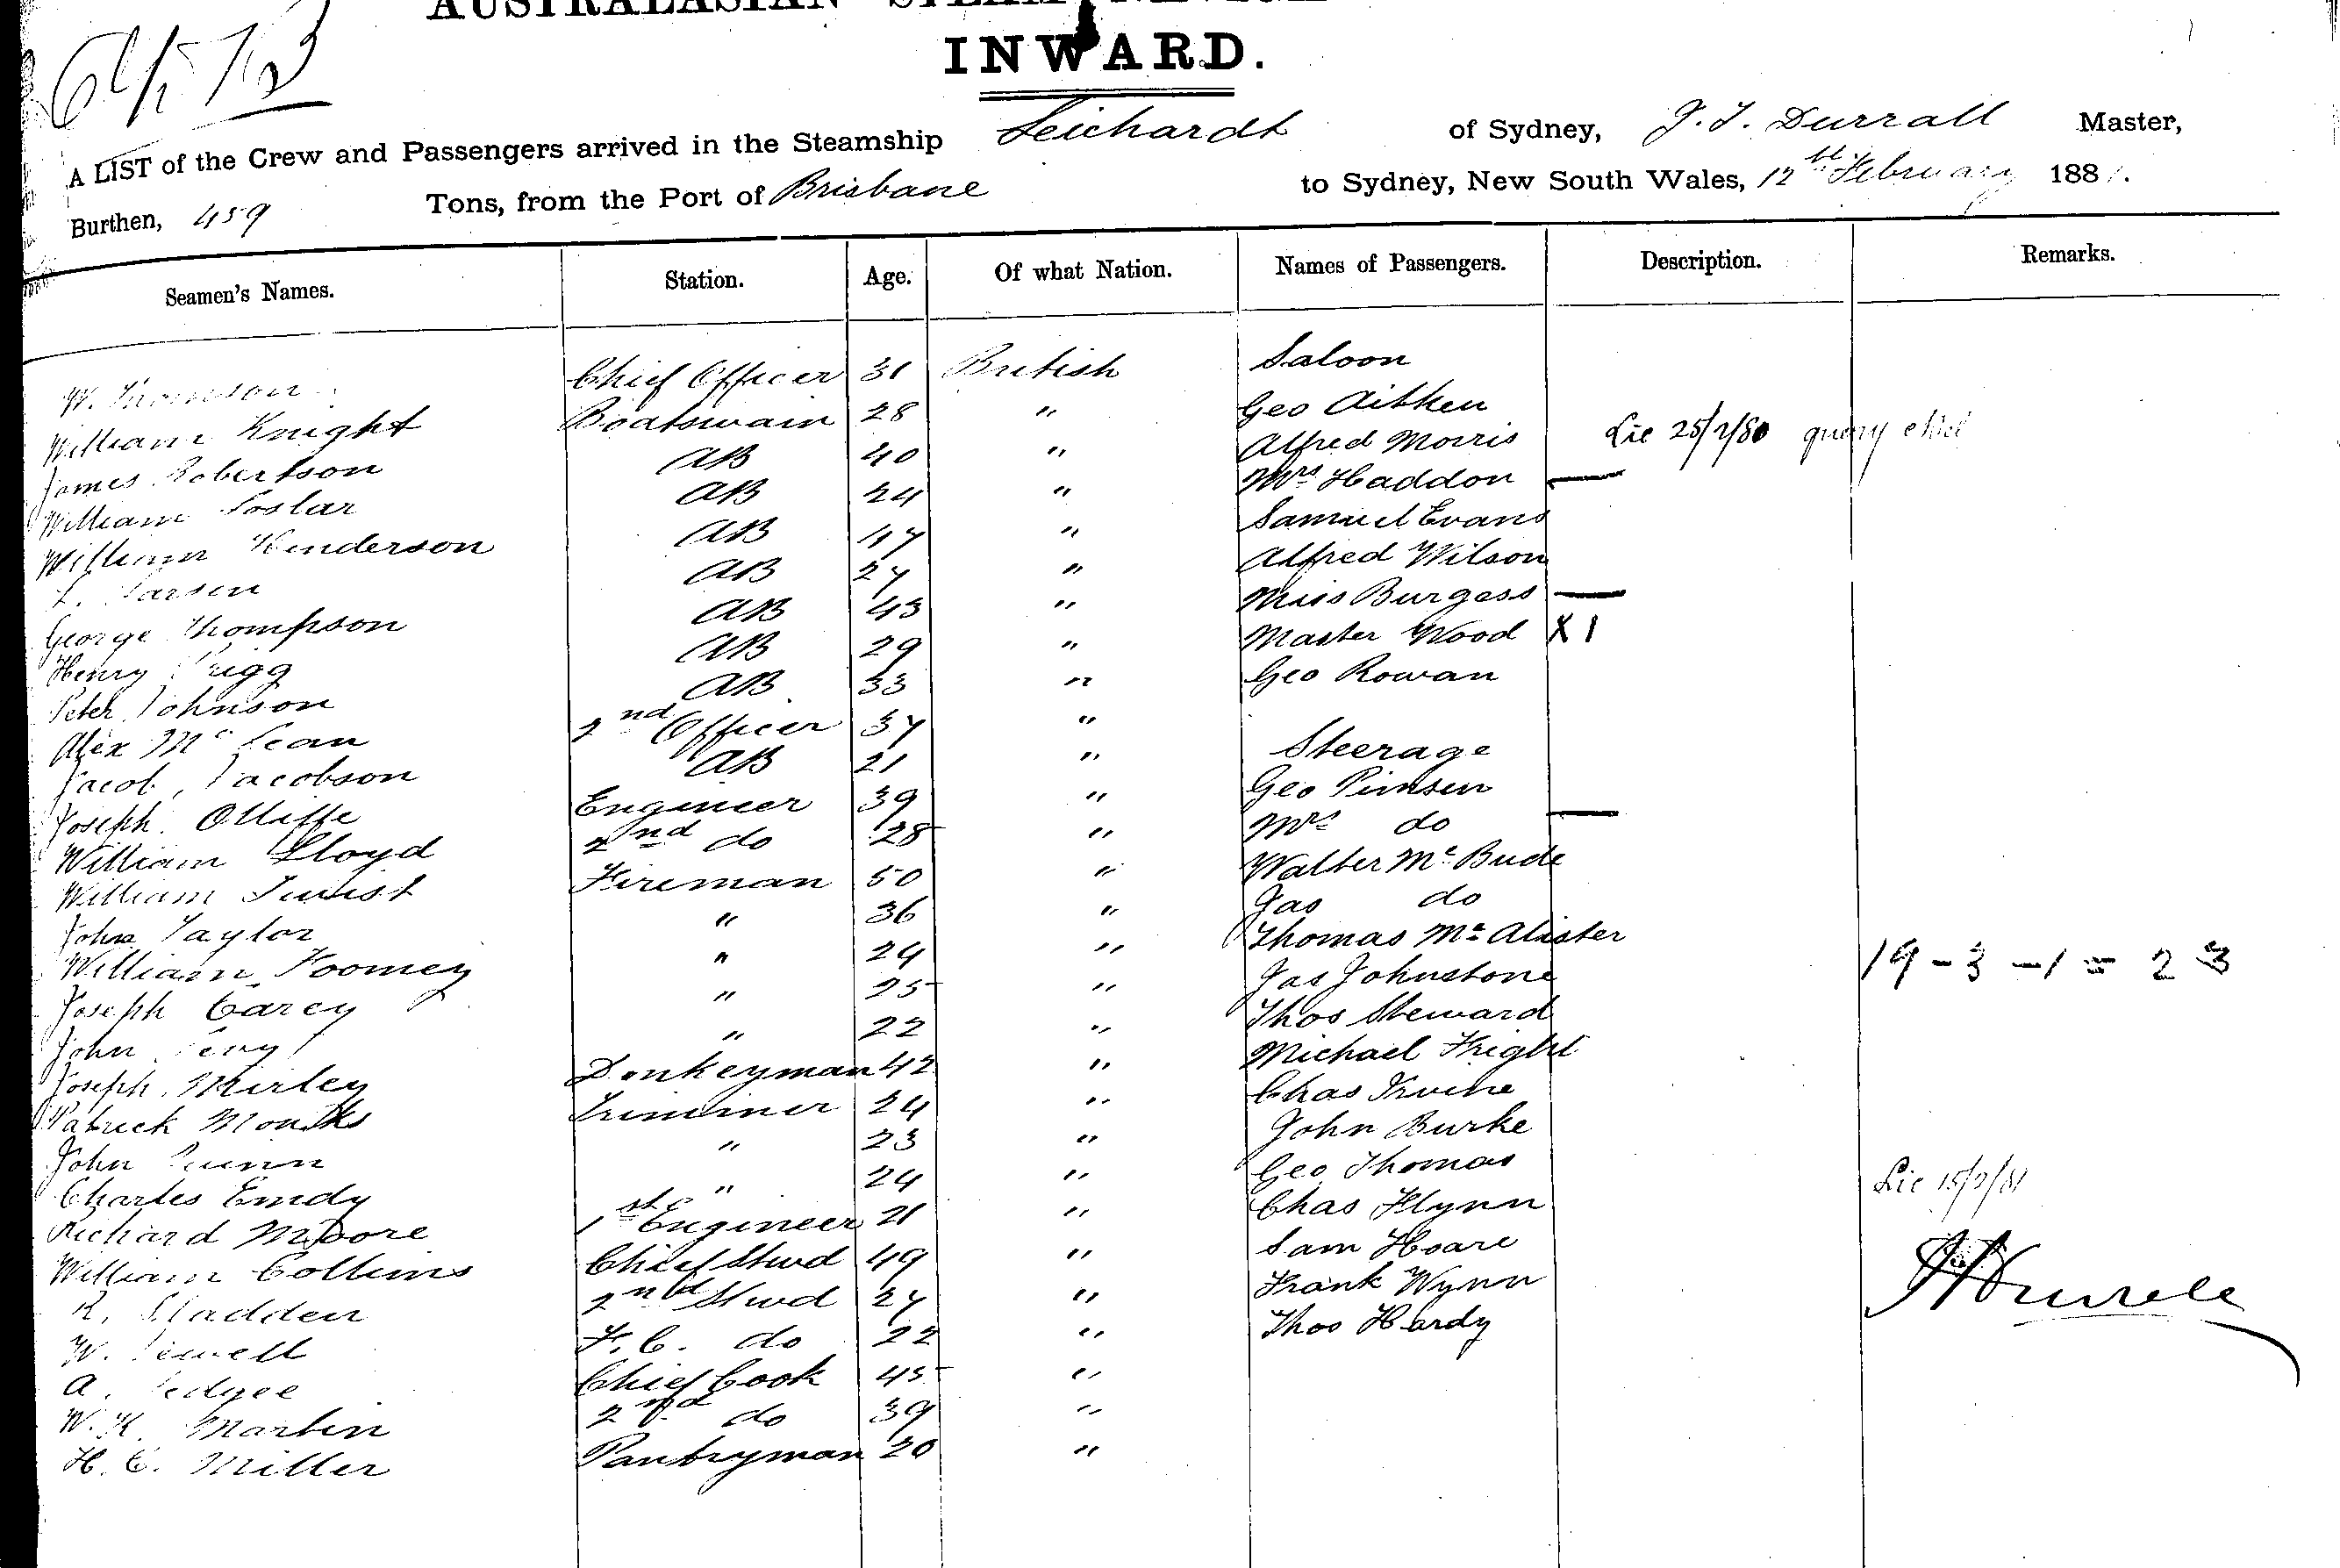 AUSTRALASIAN STEAM
INWARD.
A LIST of the Crew and Passengers arrived in the Steamship Leichardt of Sydney, J. T. Durrall Master,
Burthen, 459 Tons, from the Port of Brisbane to Sydney, New South Wales, 12th February 1881.
Seamen's Names. Station. Age. Of what Nation. Names of Passengers. Description. Remarks.
W. Thomson Chief Officer 31 British Saloon
William Knight Boatswain 28 " Geo Aitken
James Robertson AB 40 " Alfred Morris Lic 25/2/80 query
William AB 24 " Mrs Haddon —
William Henderson AB 47 " Samuel Evans
L. Larsen AB 27 " Alfred Wilson
George Thompson AB 43 " Miss Burgess —
Henry Trigg AB 29 " Master Wood X 1
Peter Johnson AB 33 " Geo Rowan
Alex Mc Lean 2nd Officer 37 "
Jacob Jacobson AB 21 " Steerage
Joseph Olliffe Engineer 39 " Geo Pimsen
William Lloyd 2nd do 28 " Mrs do —
William Twist Fireman 50 " Walter Mc Bride
John Taylor " 36 " Jas do
William Toomey " 24 " Thomas Mc Alister
Joseph Carey " 25 " Jas Johnstone 19 - 3 - 1 = 23
John " 22 " Thos Steward
Joseph Shirley Donkeyman 42 " Michael Fright
Patrick Monks Trimmer 24 " Chas Irvine
John Quinn " 23 " John Burke
Charles Emdy " 24 " Geo Thomas Lic 15/2/81
Richard Moore 1st Engineer 21 " Chas Flynn
William Collins Chief Stwd 49 " Sam Hoare
R. Sladden 2nd Stwd 27 " Frank Wynn
W. Sewell F. C. do 22 " Thos Hardy
A. Chief Cook 45 "
W. H. Martin 2nd do 39 "
H. C. Miller Pantryman 20 "